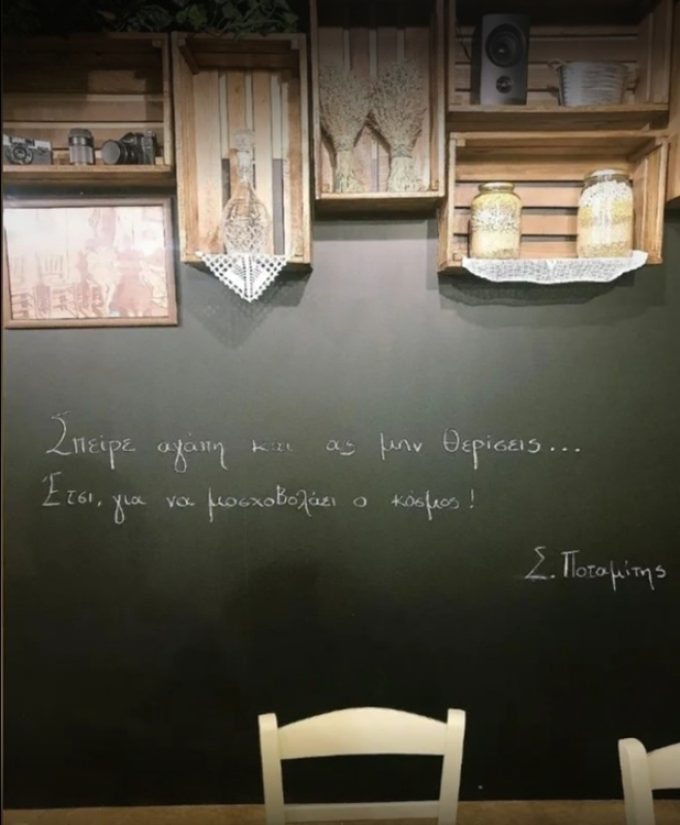 Σπείρε αγάπη και ας μην θερίσεις...
Έτσι, για να μοσχοβολάει ο κόσμος!
Σ. Ποταμίτης